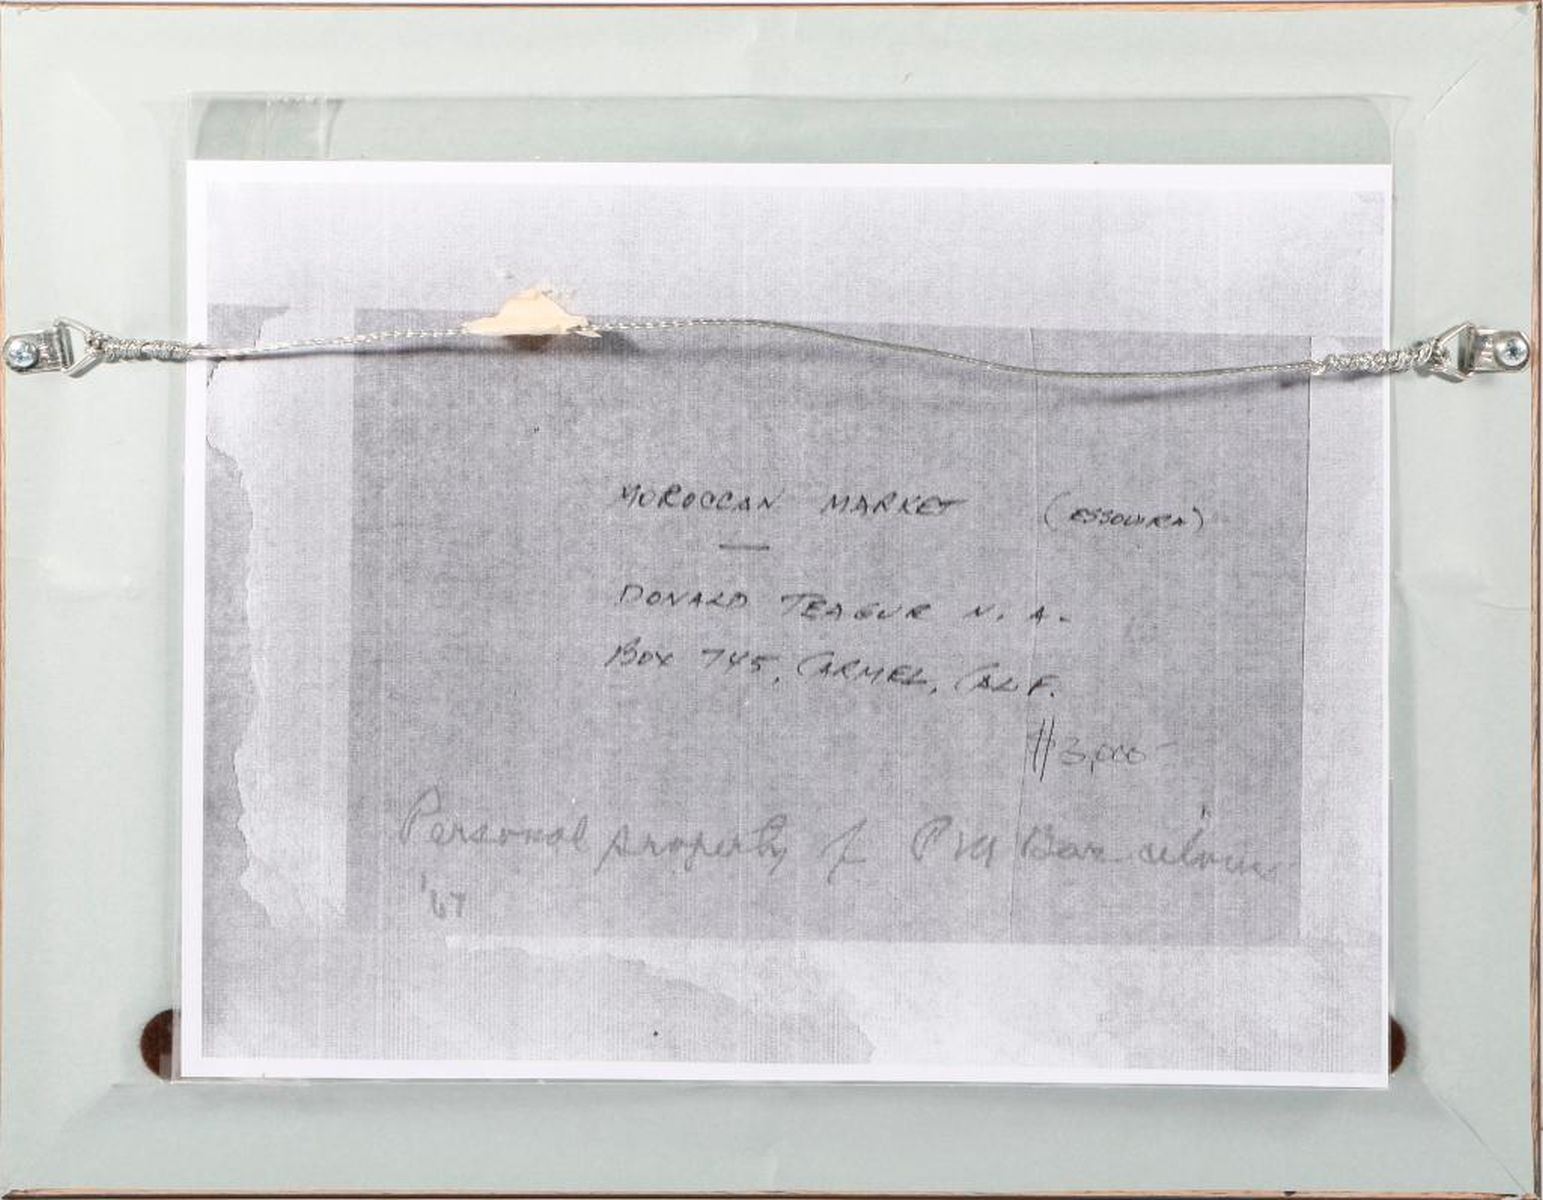 MOROCCAN MARKET (ESSOUIRA)
—
DONALD TEAGUE N. A.
BOX 745, CARMEL, CALIF.
$3,000-
Personal property of
'67